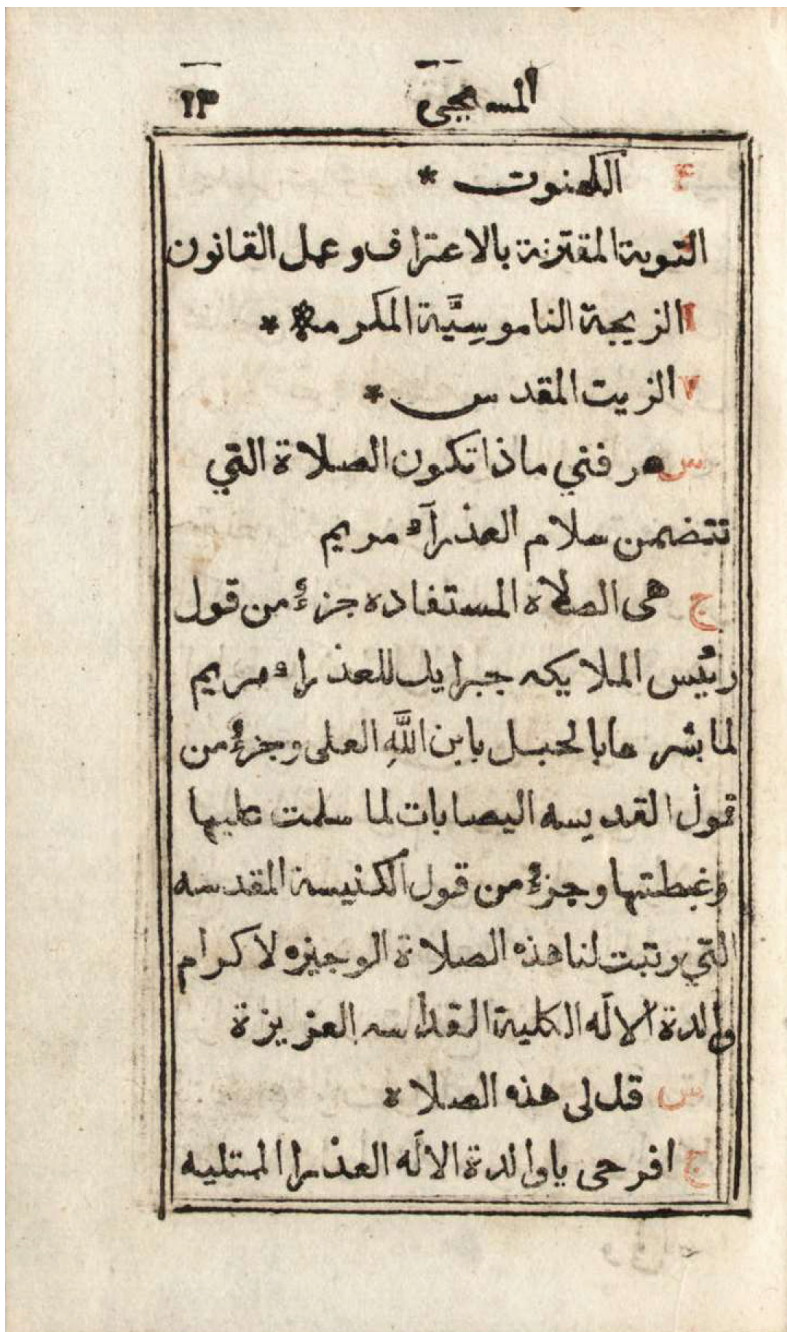 المسيحي ١٣
٤ الكهنوت *
التوبة المقترنة بالاعتراف وعمل القانون
٦ الزيجة الناموسِيَّة المكرمة *
٧ الزيت المقدس *
س عرفني ماذا تكون الصلاة التي
تتضمن سلام العذرآء مريم
ج هى الصلاة المستفاده جزءٌ من قول
رئيس الملايكه جبرايل للعذراء مريم
لما بشرها بالحبل بابن اللَّهِ العلى وجزءٌ من
قول القديسه اليصابات لما سلمت عليها
وغبطتها وجزءٌ من قول الكنيسة المقدسه
التي رتبت لنا هذه الصلاة الوجيزه لاكرام
والدة الاله الكلية القداسه العزيزة
س قل لى هذه الصلاة
ج افرحى ياوالدة الاله العذرا الممتليه